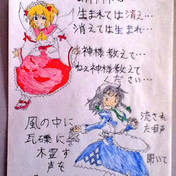 生まれては消え…
消えては生まれ…
神様教えて…
ねぇ神様教えて
ください…
風の中に
瓦礫に
木霊す
声を
流され
た唄声
聞いて